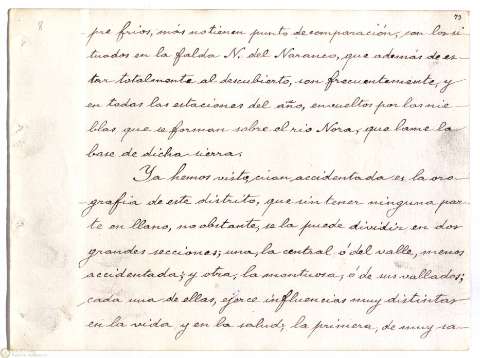 73
pre frios, más no tienen punto de comparación, con los si-
tuados en la falda N. del Naranco, que además de es-
tar totalmente al descubierto, son frecuentemente, y
en todas las estaciones del año, envueltos por las nie-
blas que se forman sobre el rio Nora, que lame la
base de dicha sierra.
Ya hemos visto, cuan accidentada es la oro-
grafia de este distrito, que sin tener ninguna par-
te en llano, no obstante, se la puede dividir en dos
grandes secciones; una, la central ó del valle, menos
accidentada; y otra, la montuosa, ó de sus vallados;
cada una de ellas, ejerce influencias muy distintas
en la vida y en la salud; la primera, de muy sa-